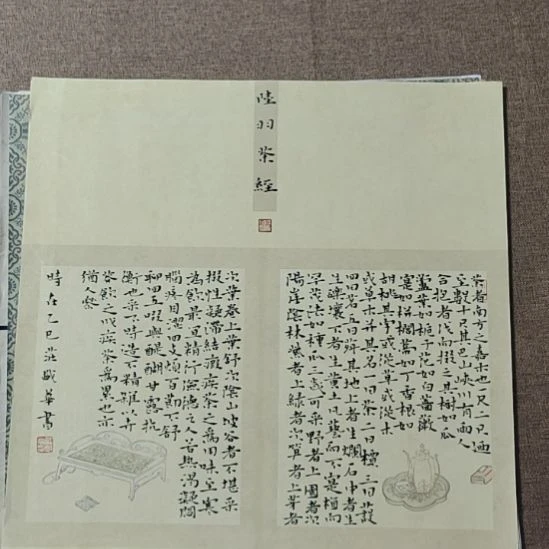 陸羽茶經
茶者南方之嘉木也一尺二尺迺
至數十尺其巴山峽川有兩人
合抱者伐而掇之其樹如瓜
蘆葉如梔子花如白薔薇
實如栟櫚蒂如丁香根如
胡桃其字或從草或從木
或草木并其名一曰茶二曰檟三曰蔎
四曰茗五曰荈其地上者生爛石中者生
生礫壤下者生黄土凡藝而不實植而
罕茂法如種瓜三歲可采野者上園者次
陽崖陰林紫者上綠者次笋者上芽者
次葉卷上葉舒次陰山坡谷者不堪采
掇性凝滯結瘕疾茶之為用味至寒
為飲最宜精行儉德之人若熱渴凝悶
腦疼目澀四支煩百節不舒
聊四五啜與醍醐甘露抗
衡也采不時造不精雜以卉
莽飲之成疾茶為累也亦
猶人參
時在乙巳莊
華書